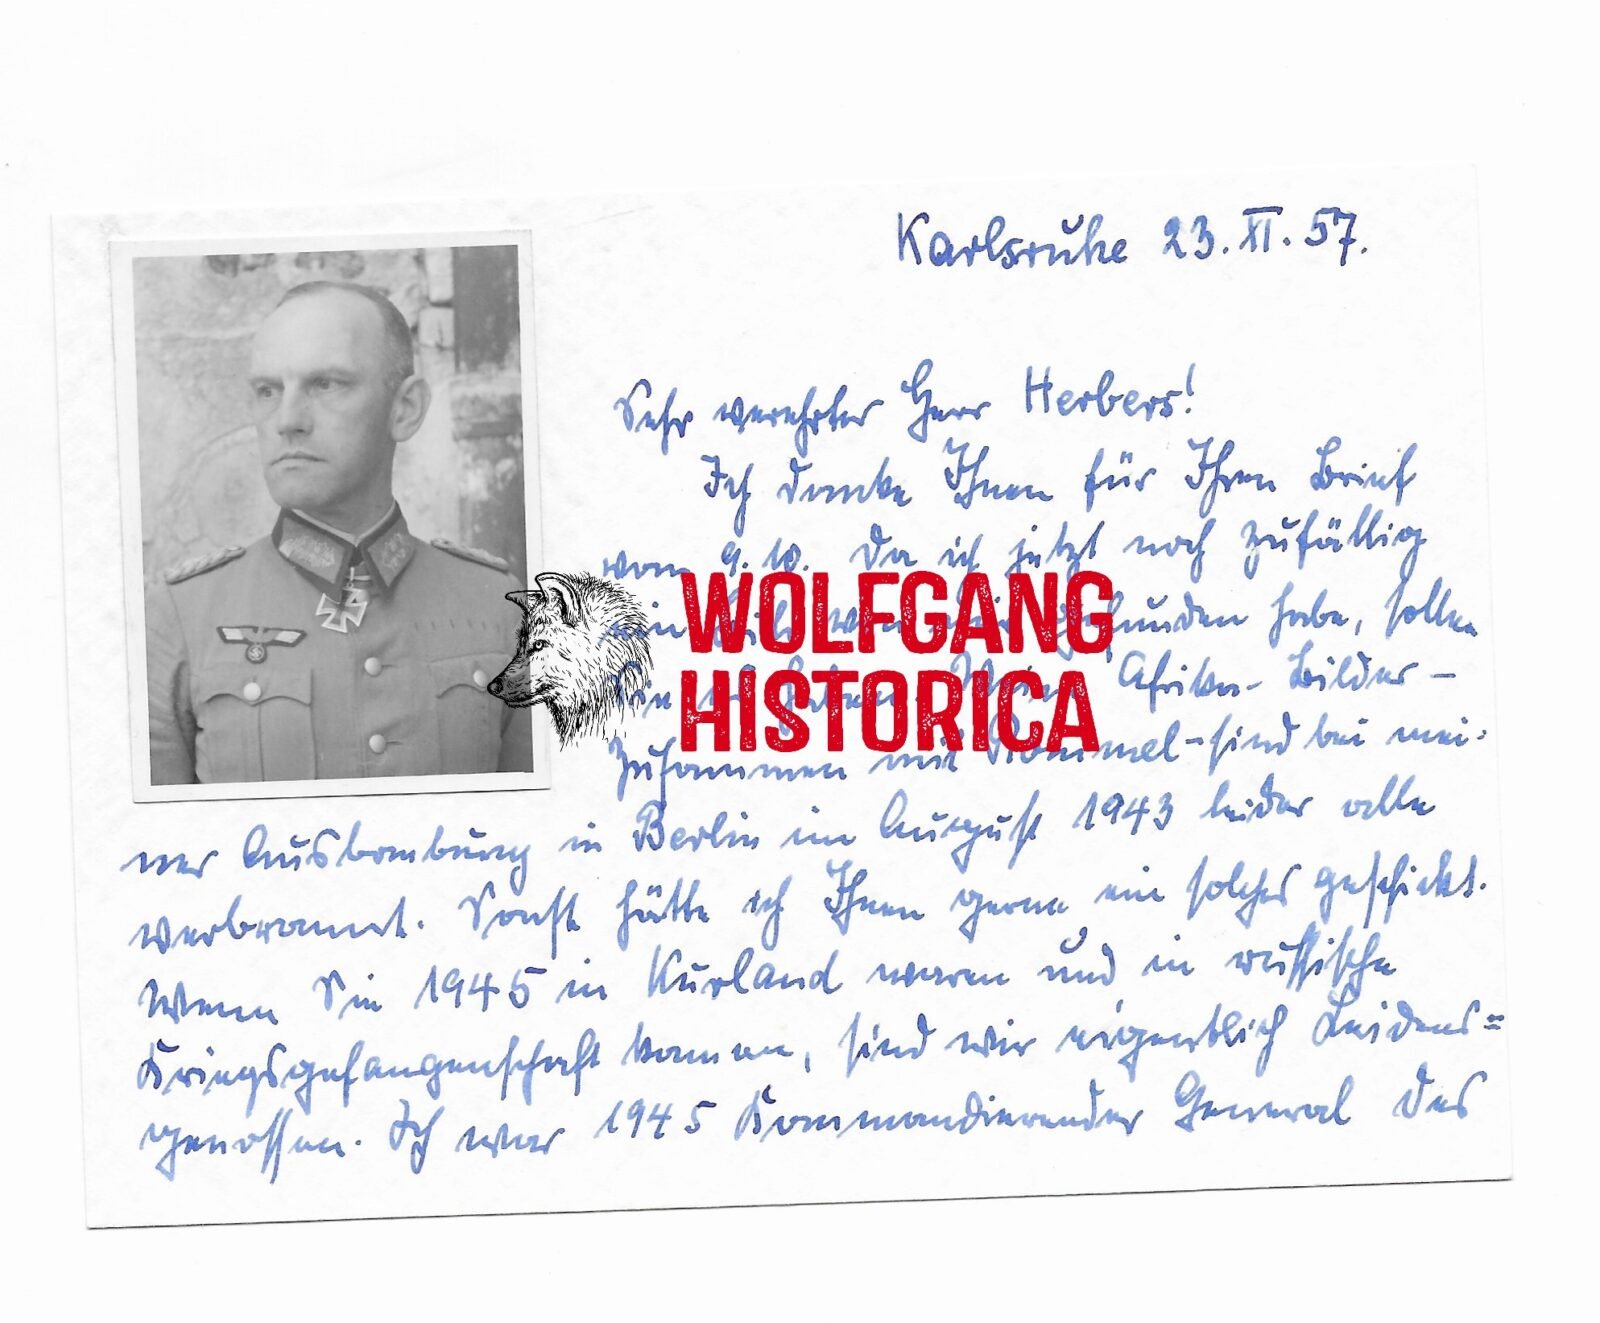 Karlsruhe 23. XI. 57.
Sehr verehrter Herr Herbers!
Ich danke Ihnen für Ihren Brief
vom 9. 10. Da ich jetzt noch zufällig
ein Bild von mir gefunden habe, sollen
Sie es haben. Meine Afrika-Bilder -
zusammen mit Rommel - sind bei mei-
ner Ausbombung in Berlin im August 1943 leider alle
verbrannt. Sonst hätte ich Ihnen gerne ein solches geschickt.
Wenn Sie 1945 in Kurland waren und in russische
Kriegsgefangenschaft kamen, sind wir eigentlich Leidens=
genossen. Ich war 1945 Kommandierender General des
WOLFGANG
HISTORICA